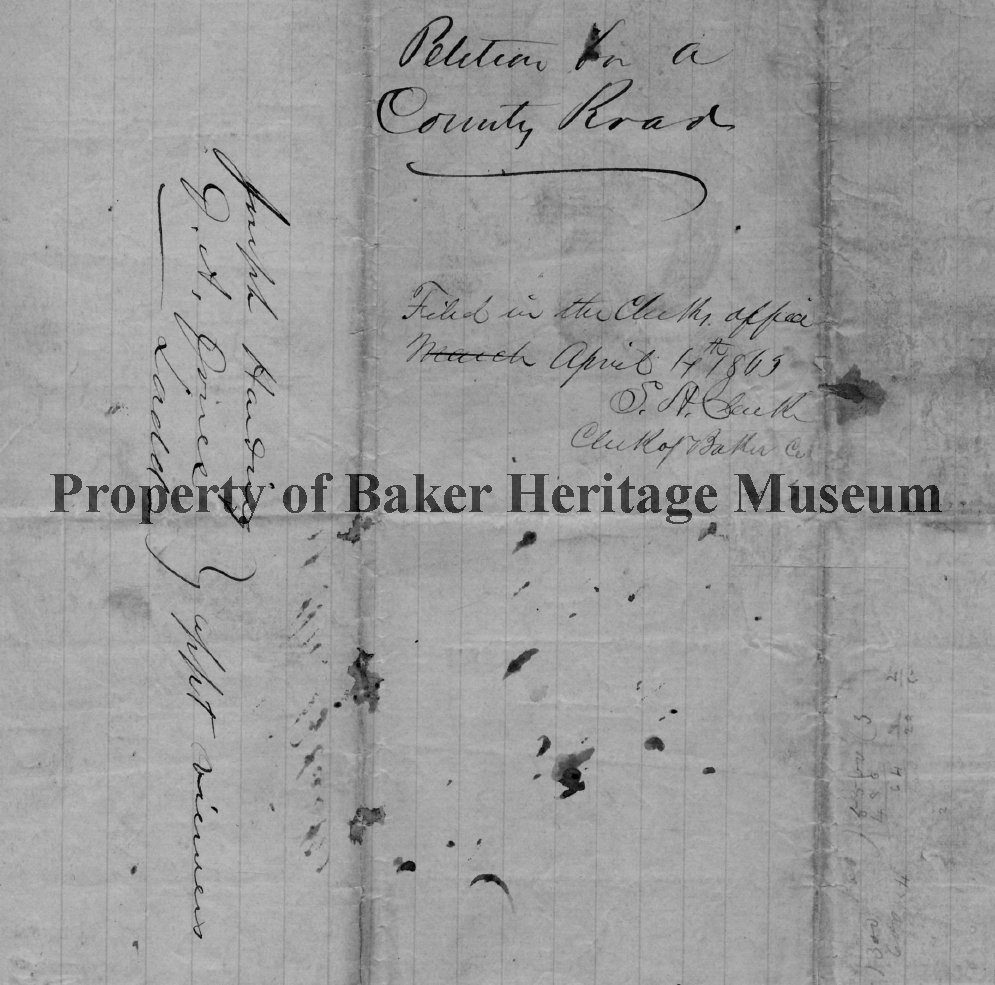 Petition for a
County Road
Filed in the Clerks office
March April 4th 1863
S. H. Clark
Clerk of Baker Co
Property of Baker Heritage Museum
Joseph Harding
G. A.
Ladd
appt viewers